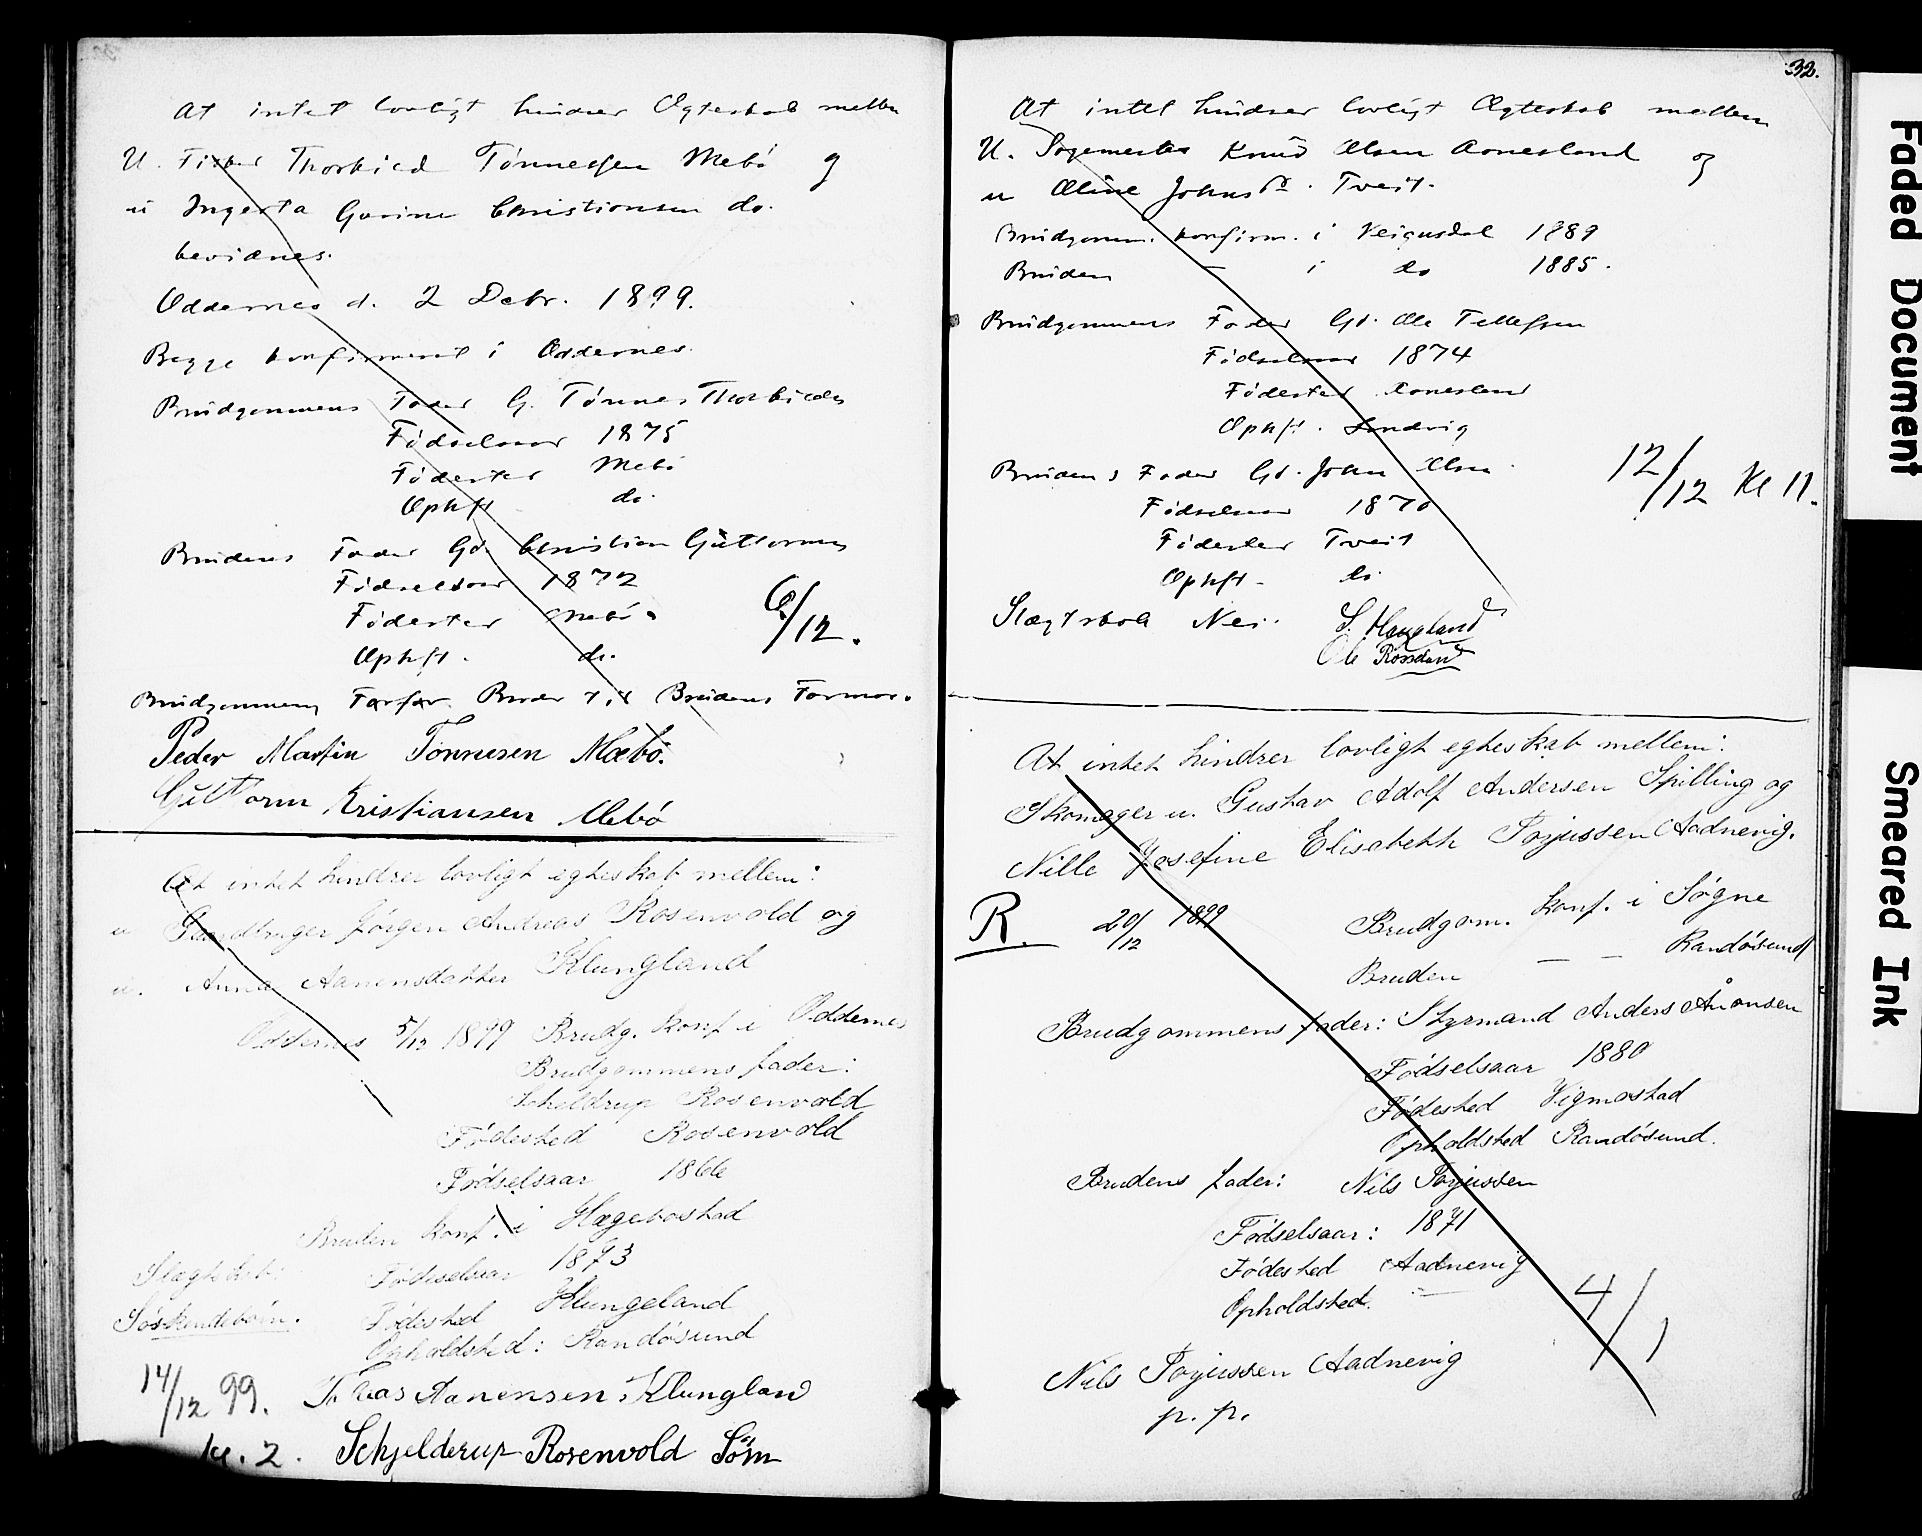 At intet lovligt hindrer Ægteskab mellem
U. Fisker Thorkild Tønnessen Mebø og
u Ingerta Gurine Christiansen do.
bevidnes.
Oddernes d. 2 Debr. 1899.
Begge konfirmeret i Oddernes.
Brudgommens Fader G. Tønnes Thorkildsen
Fødselsaar 1875
Fødested Mebø
Ophst do.
Brudens Fader Gd. Christian Guttormsen
Fødselsaar 1872
Fødested Mebø
6/12.
Ophst. do.
Brudgommens Farfar Broder til Brudens Farmor.
Peder Martin Tönnesen Mæbö.
Guttorm Kristiansen Mebö
At intet hindrer lovligt egteskab mellem:
u Gaardbruger Jörgen Andreas Rosenvold og
u. Anna Aanensdatter Klungland
Oddernes 5/12 1899 Brudg. konf i Oddernes
Brudgommens fader:
Scheldrup Rosenvold
Födested Rosenvold
Födselsaar 1866
Bruden konf. i Hægebostad
Slægtskab: Födselsaar 1873
Söskendebörn. Födested Klungeland
Opholdsted: Randösund
14/12 99. Aanensen Klungland
kl. 2. Schjelderup Rosenvold Sörn
32.
At intet hindrer lovligt Ægteskab mellem
U. Sagemester Knud Olsen Aonesland og
u Oline Johnsd. Tveit.
Brudgomm. konfirm. i Veigusdal 1889
Bruden — i do 1885.
Brudgommens Fader Gd. Ole Tellefsen
Fødselsaar 1874
Fødested Aonesland
Ophst. Sandvig
Brudens Fader Gd. John Olsen
12/12 Kl 11.
Fødselsaar 1870
Fødested Tveit
Ophst. do.
Slægtskab Nei. S. Haugland
Ole Rossdand
At intet hindrer lovligt egteskab mellem:
Skomager u. Gustav Adolf Andersen Spilling og
Nille Josefine Elisabeth Torjussen Aadnevig.
R. 20/12 1899 Brudgom. konf. i Søgne
Bruden — — Randösund
Brudgommens fader: Styrmand Anders Åoensen
Födselsaar 1880
Födested Vigmostad
Opholdsted Randösund.
Brudens fader: Nils Torjussen
Födselsaar: 1871
Födested Aadnevig
Opholdsted. —
4/1
Nils Torjussen Aadnevig
p. p.
Faded Document
Smeared Ink